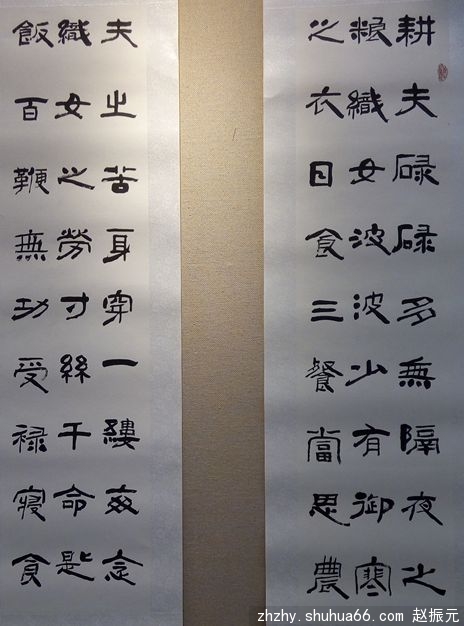 耕夫碌碌多無隔夜之
粮織女波波少有御寒
之衣日食三餐當思農
夫之苦身穿一縷每念
織女之勞寸絲千命匙
飯百鞭無功受禄寝食
zhzhy.shuhua66.com 赵振元